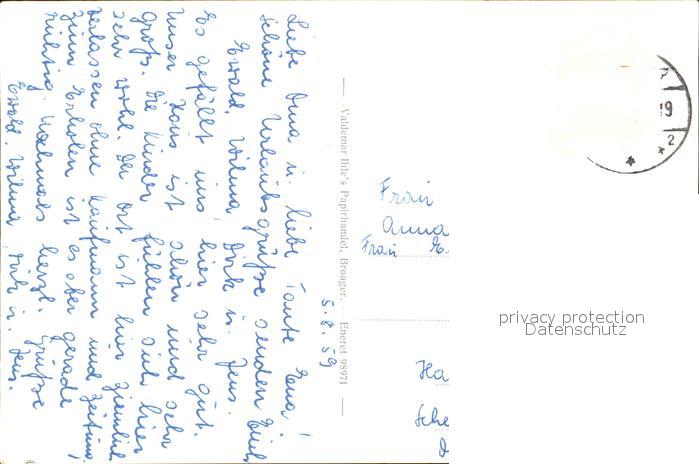 5.8.59
Liebe Oma u. liebe Tante Erna!
Schöne Urlaubsgrüße senden Euch
Ewald, Wilma, Dirk u. Jens.
Es gefällt uns hier sehr gut.
Unser Haus ist schön und sehr
groß. Die Kinder fühlen sich hier
sehr wohl. Der Ort ist hier ziemlich
verlassen ohne Kaufmann und Zeitung!
Zum Erholen ist es aber gerade
richtig. Nochmals herzl. Grüße
Ewald, Wilma, Dirk u. Jens.
Valdemar Ihle's Papirhandel, Broager. — Eneret 98971
Frau
Anna
Frau E.
Ha
Sche
19
2
privacy protection
Datenschutz